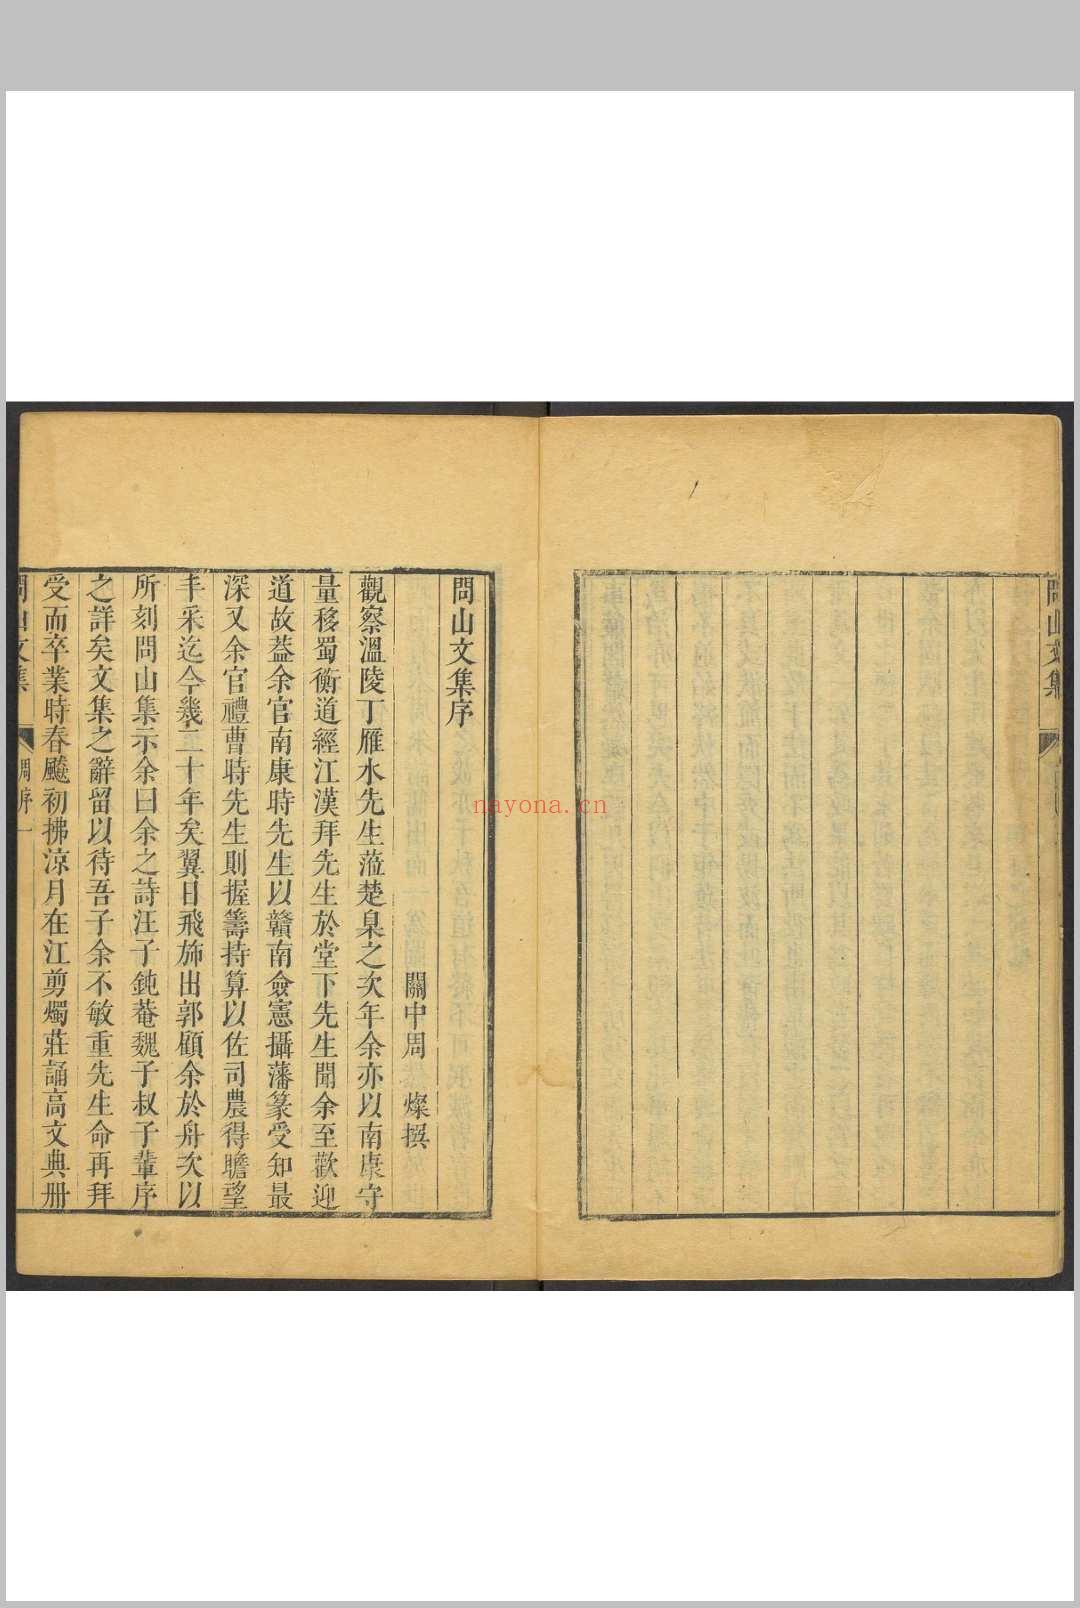 問山文集
問山文集序
關中周　燦撰
觀察溫陵丁雁水先生蒞楚臬之次年余亦以南康守
量移蜀衡道經江漢拜先生於堂下先生聞余至歡迎
道故葢余官南康時先生以贛南僉憲攝藩篆受知最
深又余官禮曹時先生則握籌持算以佐司農得瞻望
丰采迄今幾二十年矣翼日飛斾出郭顧余於舟次以
所刻問山集示余曰余之詩汪子鈍菴魏子叔子輩序
之詳矣文集之辭留以待吾子余不敏重先生命再拜
受而卒業時春飈初拂涼月在江剪燭莊誦高文典册
問山文集　周序　一
nayona.cn